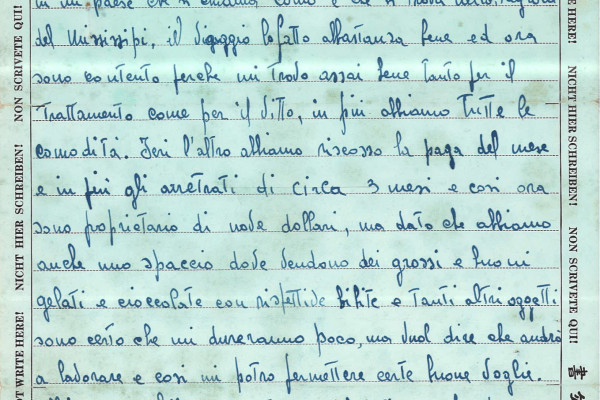 in un paese che si chiama Como e che si trova nello
del Missisipi, il viaggio lo fatto abbastanza bene ed ora
sono contento perche mi trovo assai bene tanto per il
trattamento come per il vitto, in più abbiamo tutte le
comodità. Jeri l'altro abbiamo riscosso la paga del mese
e in più gli arretrati di circa 3 mesi e cosi ora
sono proprietario di nove dollari, ma dato che abbiamo
anche uno spaccio dove vendono dei grossi e buoni
gelati e cioccolate con rispettive bibite e tanti altri oggetti
sono certo che mi dureranno poco, ma vuol dire che andrò
a lavorare e cosi mi potro permettere certe buone voglie.
NON SCRIVETE QUI!
NICHT HIER SCHREIBEN!
NOT WRITE HERE!
HERE!
NICHT HIER SCHREIBEN!
NON SCRIVETE QUI!
書